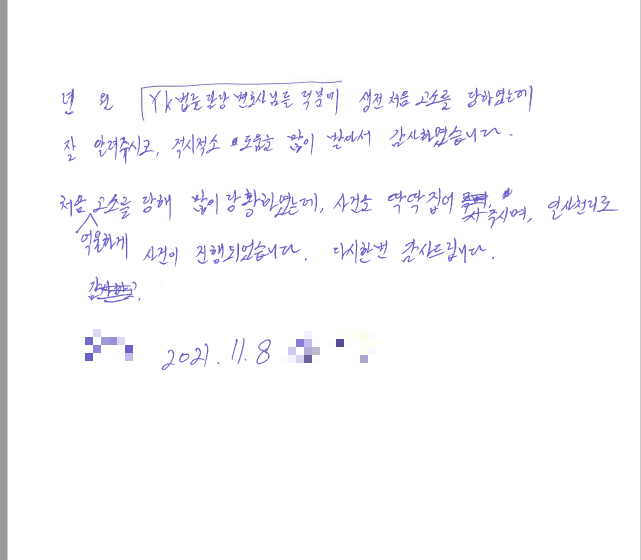 년 월 YK법률담당 변호사님들 덕분에 생전 처음 고소를 당하였는데
잘 알려주시고, 적시적소 도움을 많이 받아서 감사하였습니다.
처음 고소를 당해 많이 당황하였는데, 사건을 딱딱 집어 주시며, 일사천리로
억울하게 사건이 진행되었습니다. 다시한번 감사드립니다.
2021. 11. 8